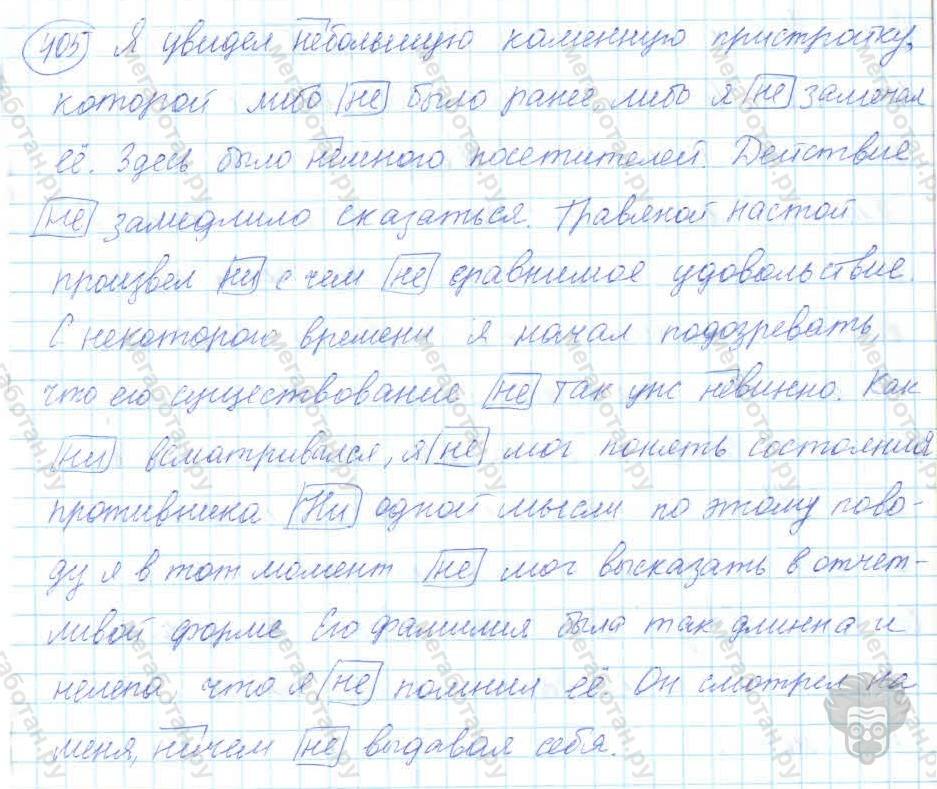 405 Я увидел небольшую каменную пристройку,
которой либо не было ранее либо я не замечал
её. Здесь было немного посетителей. Действие
не замедлило сказаться. Травяной настой
произвел ни с чем не сравнимое удовольствие.
С некоторого времени я начал подозревать,
что его существование не так уж невинно. Как
ни всматривался, я не мог понять состояния
противника Ни одной мысли по этому пово-
ду я в тот момент не мог высказать в отчет-
ливой форме. Его фамилия была так длинна и
нелепа, что я не помнил её. Он смотрел на
меня, ничем не выдавая себя.
мегаботан.ру